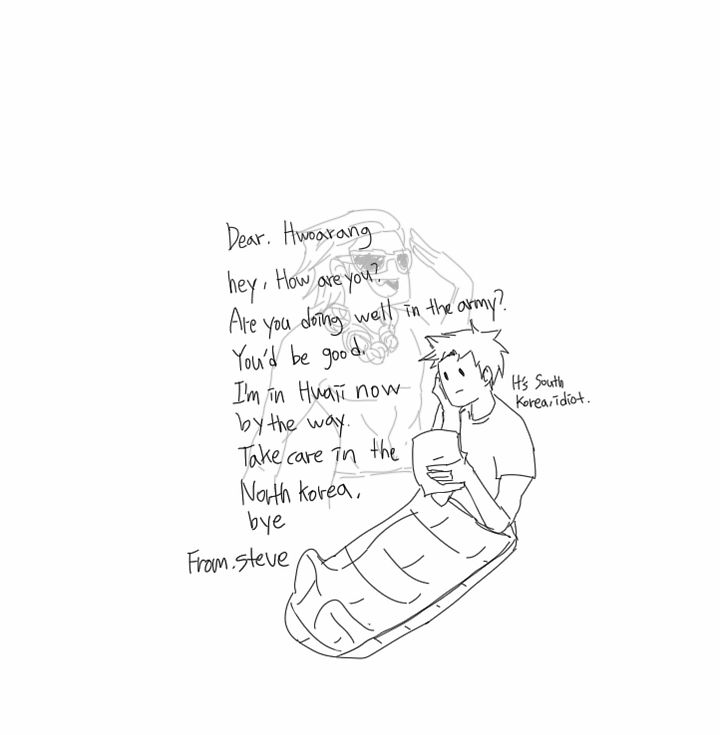 Dear. Hwoarang
hey, How are you?
Are you doing well in the army?
You'd be good.
I'm in Huaii now
by the way.
Take care in the
North Korea,
bye
From.steve
It's South
Korea,idiot.